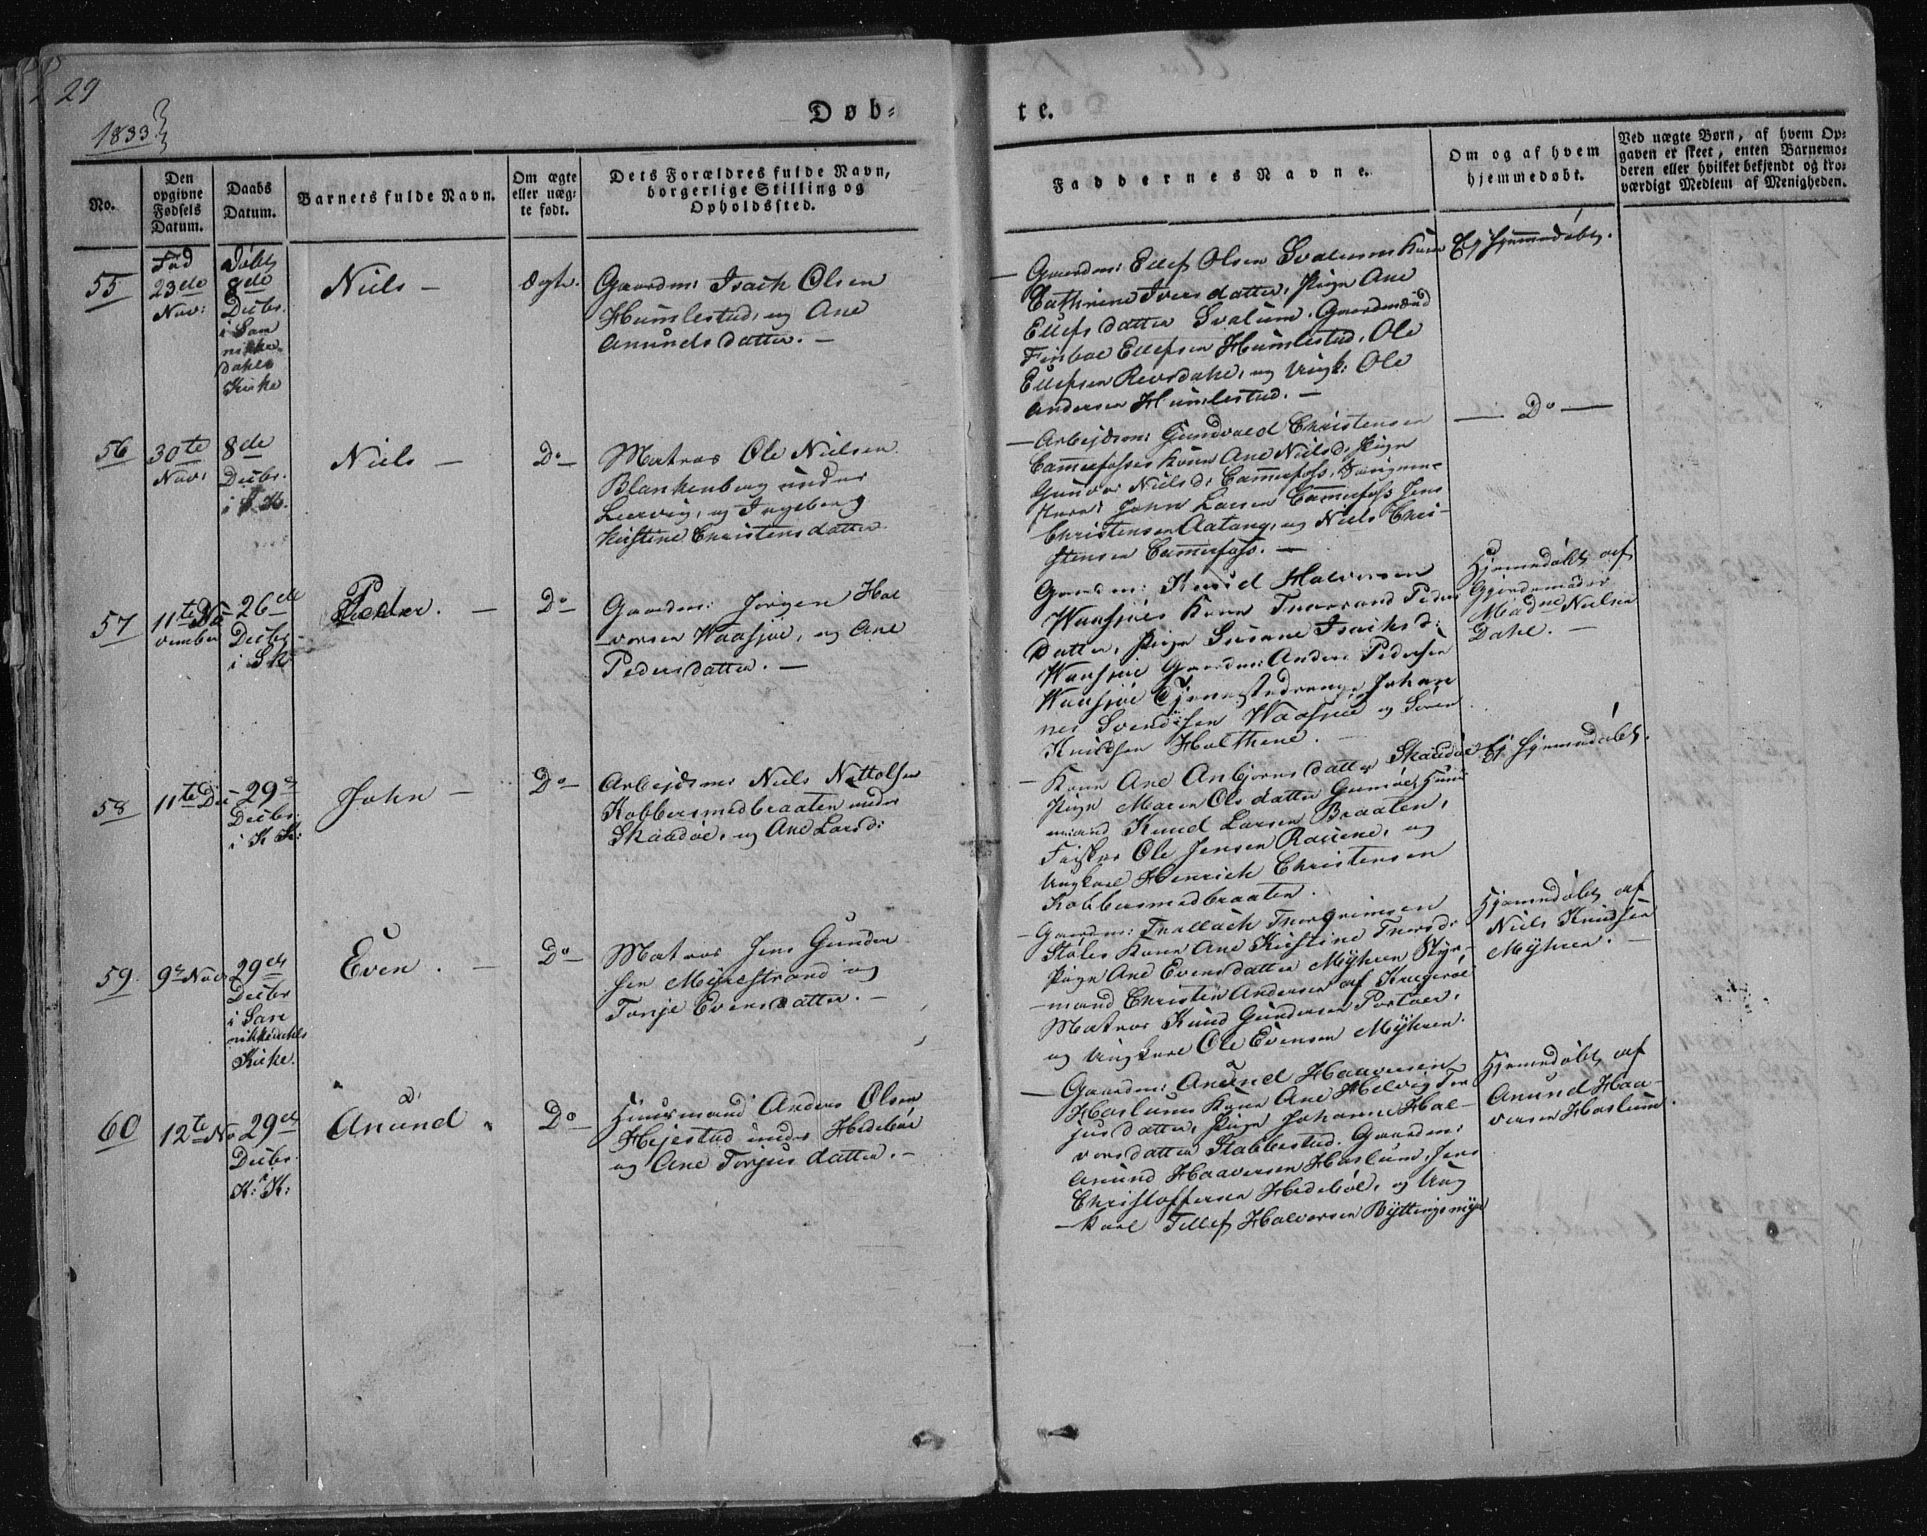 29
1833
Døb-
te.
No.
Den opgivne Fødsels Datum.
Daabs Datum.
Barnets fulde Navn.
Om ægte eller uægte født.
Dets Forældres fulde Navn, borgerlige Stilling og Opholdssted.
Faddernes Navne.
Om og af hvem hjemmedøbt.
Ved uægte Børn, af hvem Opgaven er skeet, enten Barnemoderen eller hvilket bekjendt og troværdigt Medlem af Menigheden.
55
Fød
23de
Nov:
Døbt
8de
Decbr.
i San
nikke-
dahls
Kirke
Niels –
Ægte.
Gaardm: Isach Olsen
Humlestad, og Ane
Anundsdatter. –
Gaardm: Ellef Olsen Svalums Kone
Cathrine Iversdatter, Pige Ane
Ellefsdatter Svalum. Gaardmænd
Ellefsen Humlestad, Ole
Ellefsen Reirsdahl, og Ungk: Ole
Andersen Humlestad. –
Ej hjemmedøbt.
56
30te
Nov:
8de
Decbr.
i S. K.
Niels –
Do –
Matros Ole Nielsen
Blankenberg under
Leervig, og Ingeborg
Kirstine Christensdatter
– Arbejdsm: Gundvald Christensen
Cammerfosses Kone Ane Nielsd, Pige
Gunvor Nielsd: Cammerfoss,
John Larsen Cammerfoss Jens
Christensen Aatang, og Niels Chri-
stensen Cammerfoss. –
– Do –
57
11te No-
vember
26de
Decbr.
i Sk
Peder. –
Do –
Gaardm: Jørgen Hal
vorsen Waasjøe, og Ane
Pedersdatter. –
Gaardm: Knud Halvorsen
Waasjøes Kone Peders
datter, Pige Susane Isachsd:
Waasjøe Gaardm: Anders Pedersen
Waasjøe Tjenestedrenge Johan
nes Svendsen Waasjøe og Søren
Knudsen Holthene. –
Hjemmedøbt af
Gjordemoder
Madme Nielsen
Dahl. –
58
11te Dec
29de
Decbr
i K K:
John –
Do –
Arbejdsm: Niels Nettolfsen
Kobbersmedbraaten under
Skaadøe, og Ane Larsd:
– Kone Ane Anbjørnsdatter Skaadøe
Pige Maren Olsdatter Gumøe, Huus
mand Knud Larsen Braaten,
Fisker Ole Jensen Rauene, og
Ungkarl Henrich Christensen
Kobbersmedbraaten.
Ej hjemmedøbt.
59
9de Nov
29de
Decbr
i San
nikkedahls
Kirke.
Even. –
Do –
Matros Jens Gunder
sen Myrestrand og
Tonje Evensdatter. –
– Gaardm: Thorgrimsen
Støles Kone Ane Kirstine Thorsd:
Pige Ane Evensdatter Myhren Styr-
mand Christen Andersen af Kragerøe
Matros Knud Gundersen Portøer,
og Ungkarl Ole Evensen Myhren.
Hjemmedøbt af
Niels Knudsen
Myhren. –
60
12te No
29de
Decbr.
K: K:
Anund
Do –
Huusmand Anders Olsen
Hejestad under Hedebøe
og Ane Torjusdatter. –
– Gaardm: Anund Haaversen
Haslums Kone Ane Helvig Tor
jusdatter, Pige Johanne Hal-
vorsdatter Stabbestad. Gaardm:
Anund Haaversen Haslum, Jens
Christoffersen Hedebøe, og Ung
karl Tellef Halvorsen Byttingsmyr
Hjemmedøbt af
Anund Haa-
versen Haslum.